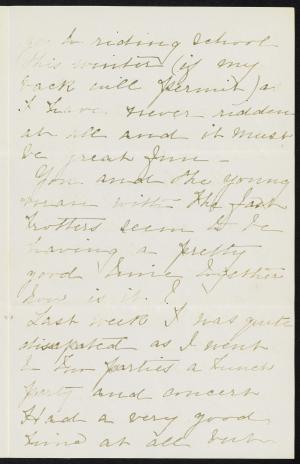 go to riding school
this winter (if my
back will permit) as
I have never ridden
at all and it must
be great fun -
You and the young
man with the fast
trotters seem to be
having a pretty
good time together
how is it. ?
Last week I was quite
dissepated as I went
to two parties a lunch
party and concert
Had a very good
time at all but